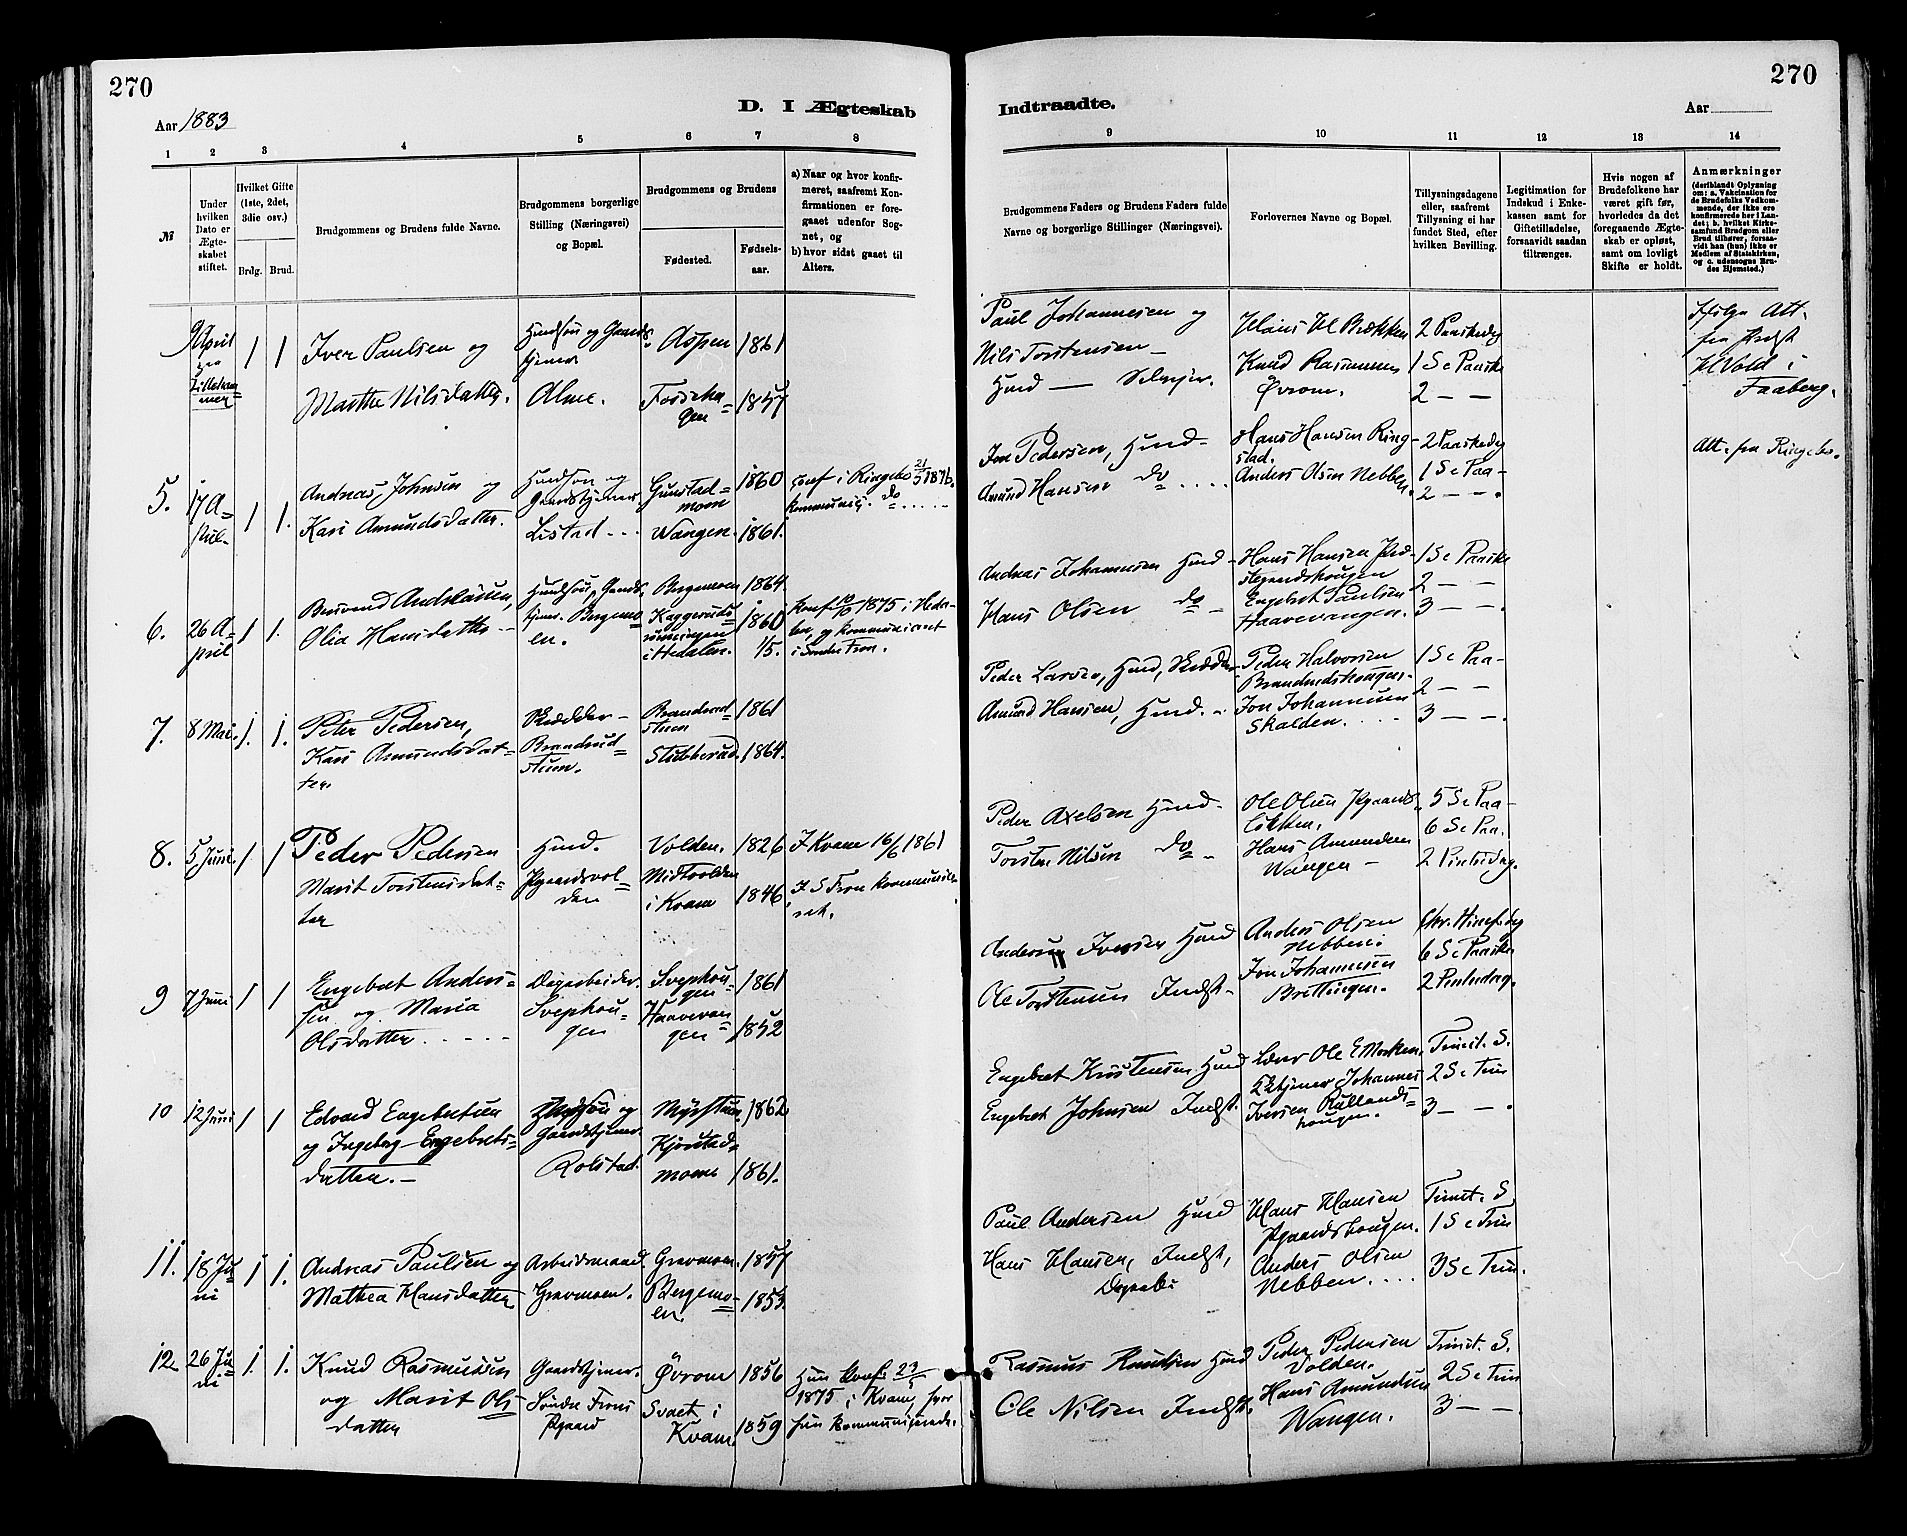 270
270
D. I Ægteskab
Indtraadte.
Aar 1883
Aar
1 2 3 4 5 6 7 8
9 10 11 12 13 14
№
Under
hvilken
Dato er
Ægte-
skabet
stiftet.
Hvilket Gifte
(1ste, 2det,
3die osv.)
Brdg. Brud.
Brudgommens og Brudens fulde Navne.
Brudgommens borgerlige
Stilling (Næringsvei)
og Bopæl.
Brudgommens og Brudens
Fødested.
Fødsels-
aar.
a) Naar og hvor konfir-
meret, saafremt Kon-
firmationen er fore-
gaaet udenfor Sog-
net, og
b) hvor sidst gaaet til
Alters.
Brudgommens Faders og Brudens Faders fulde
Navne og borgerlige Stillinger (Næringsvei).
Forlovernes Navne og Bopæl.
Tillysningsdagene
eller, saafremt
Tillysning ei har
fundet Sted, efter
hvilken Bevilling.
Legitimation for
Indskud i Enke-
kassen samt for
Giftetilladelse,
forsaavidt saadan
tiltrænges.
Hvis nogen af
Brudefolkene har
været gift før,
hvorledes da det
foregaaende Ægte-
skab er opløst,
samt om lovligt
Skifte er holdt.
Anmærkninger
(deriblandt Oplysning
om: a. Vakcination for
de Brudefolks Vedkom-
mende, der ikke ere
konfirmerede her i Lan-
det; b. hvilket Kirke-
samfund Brudgom eller
Brud tilhører, forsaa-
vidt han (hun) ikke er
Medlem af Statskirken,
og c. udensogns Bru-
des Hjemsted.)
9 April
Lilleham=
mer
1 1
Iver Paulsen og
Marthe Nilsdatter.
Husdsøn og Gaards-
tjener
Alme.
Aspen 1861
Fosseha=
gen 1857
Paul Johannesen og
Nils Torstensen –
Husd — Selvejer.
Hans H Brækken
Knud Rasmussen
Øvrom.
2 Paaskedag
1 S e Paaske
2 – –
Ifølge Att.
fra Præst
H Vold i
Faaberg.
5. 17 A=
pril 1 1.
Andreas Johnsen og
Kari Amundsdatter.
Husdsøn og
Gaardstjener
Listad
Gunstad=
moen 1860
Wangen. 1861.
conf i Ringebo 21/5 1876.
Kommunic. do
Jon Pedersen, Husd–
Amund Hansen do
Hans Hansen Ring-
stad.
Anders Olsen Nebben.
2 Paaskedag
1 S e Paa-
2 – –.
Att. fra Ringebo.
6. 26 A=
pril 1 1.
Olia Hansdatter –
Husdsøn, Gaards
tjener. Bergemo
en.
Bergemoen 1864.
i Hedalen. 1860
1/5.
Konf 10/10 1875 i Heda-
len, og kommunicert
i Søndre Fron.
Andreas Johannesen Husd–
Hans Olsen do
Hans Hansen Præ-
stegaardshougen
Engebret Paulsen
Haavevangen.
1 S e Paaske
2 – –
3 – –.
7. 8 Mai. 1. 1.
Peter Pedersen,
Kari Amundsdat-
ter.
Skrædder –
Brandrud=
stuen.
Brandrud=
stuen 1861
Stubberud. 1864.
Peder Larsen, Husd, Skrædder
Amund Hansen, Husd.
Peder Halvorsen
Brandrudshougen.
Jon Johannesen
Skalden.
1 S e Paa-
2 – –
3 – –.
8. 5 Juni. 1 1
Peder Pedersen
Marit Torstensdat=
ter
Husd.
Pgaardsvol=
den
Volden. 1826
Midtvolden
i Kvam 1846
I Kvam 16/6 1861
I S Fron kommunice-
ret.
Peder Axelsen Husd–
Torsten Nilsen do
Ole Olsen Pgaards
løkken.
Hans Amundsen
Wangen –
5 S e Paa-
6 S e Paa.
2 Pintsedag.
9 7 Juni 1 1
Engebret Anders=
sen og Maria
Olsdatter
Dagarbeider.
Svephou=
gen
Svephou=
gen 1861
Haavevan=
gen 1852
Anders Iversen Husd
Ole Torstensen Indst.
Anders Olsen
Nebben.
Jon Johannesen
Brettingen.
Chr. Himmelf.dag
6 S e Paaske
2 Pintsedag.
10 12 Juni 1 1
Edvard Engebretsen
og Ingeborg Engebrets=
datter. –
Husdsøn og
Gaardstjener.
Rolstad.
Myrstuen 1862
Kjorstad=
moen 1861.
Engebret Kristensen Husd
Engebret Johnsen Indst.
Lærer Ole E Moshen.
Johannes
Iversen Rullands=
hougen.
Trinit. S.
2 S e Trin
3 – –.
11. 18 Ju=
ni 1 1.
Andreas Paulsen og
Mathea Hansdatter
Arbeidsmand
Gravmoen.
Gravmoen. 1857
Bergemo=
en. 1853.
Paul Andersen Husd
Hans Hansen, Indst,
Dagarb.
Hans Hansen
Pgaardshougen.
Anders Olsen
Nebben.
Trinit. S.
1 S e Trin
3 S e Trin.
12. 26 Ju=
ni 1. 1.
Knud Rasmussen
og Marit Ols
datter
Gaardstjener.
Søndre Frons
Pgaard
Øvrom 1856
Svaet i
Kvam. 1859
Hun konf. 23/5
1875 i Kvam, hvor
hun kommunicerede.
Rasmus Knutsen Husd
Ole Nilsen Indst.
Peder Pedersen
Volden.
Hans Amundsen
Wangen.
Trinit. S.
2 S e Trin
3 – –.